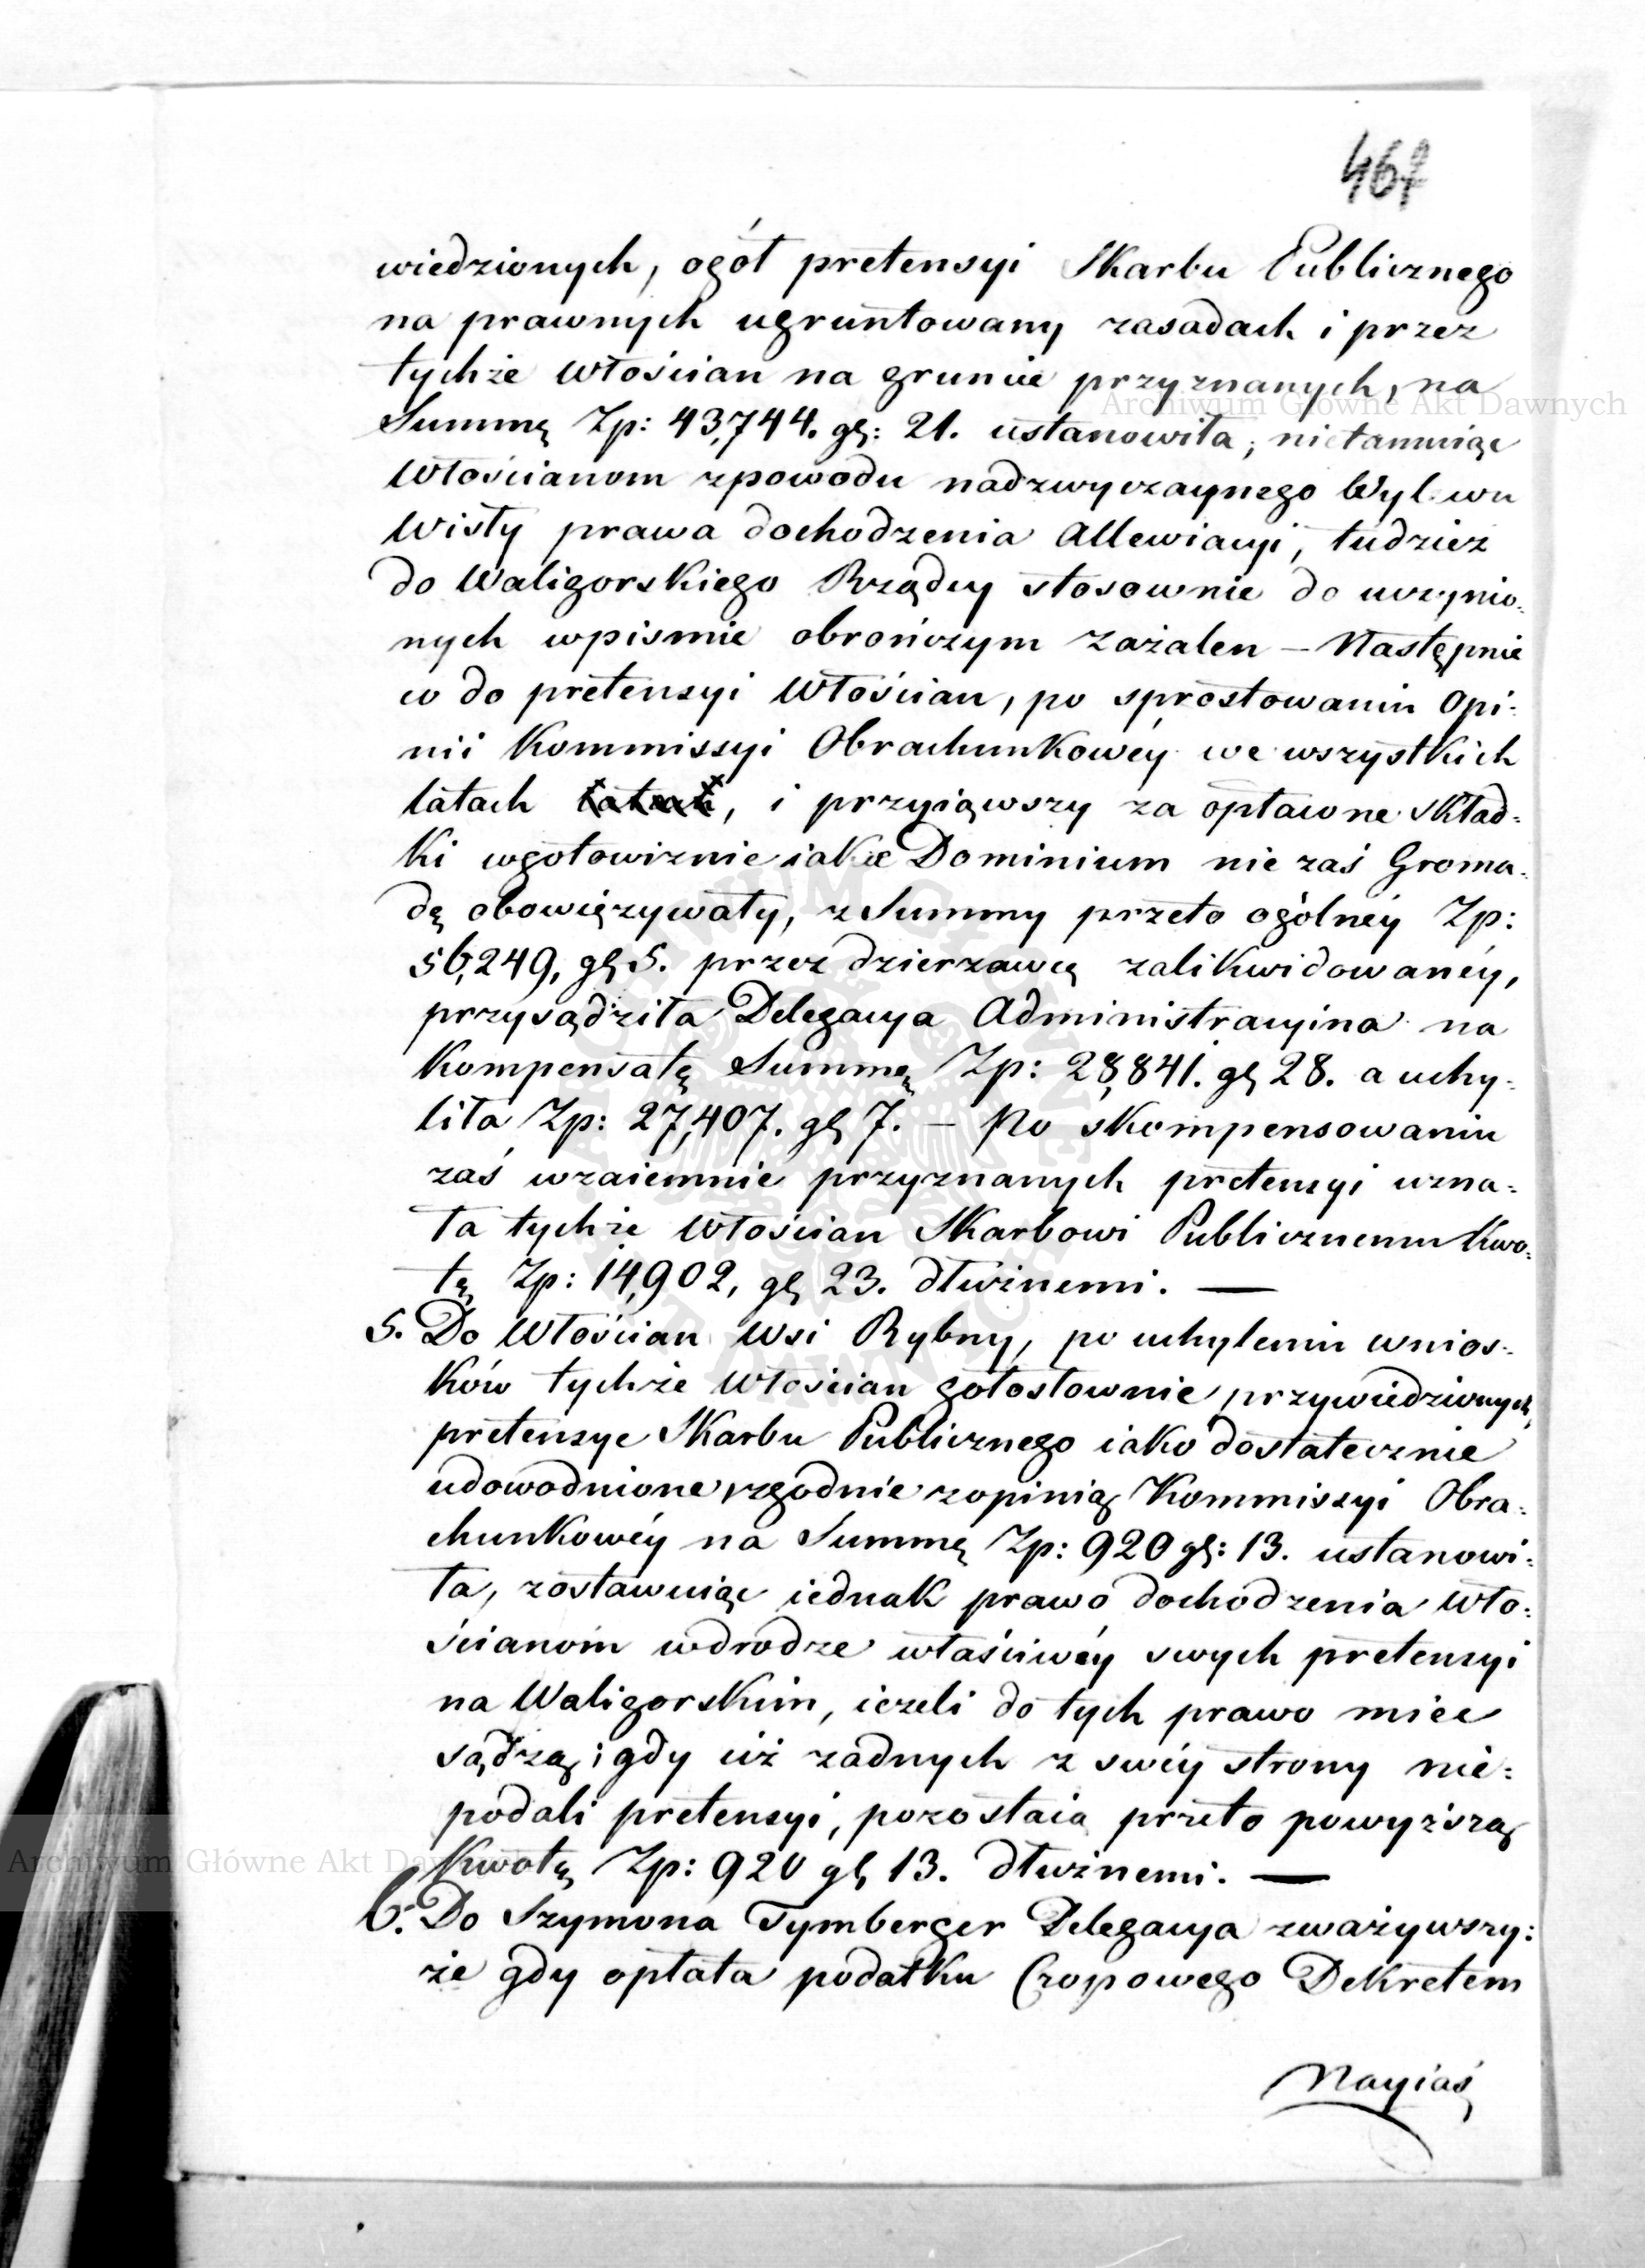 467
wiedzionych, ogół pretensyi Skarbu Publicznego
na prawnych ugruntowany zasadach i przez
tychże Włościan na gruncie przyznanych, na
Summę Zp: 43,744. gę: 21. ustanowiła, nietamuiąc
Włościanom zpowodu nadzwyczaynego Wylewu
Wisły prawa dochodzenia Allewiacyi, tudzież
do Waligorskiego Rządcy stosownie do uczynio:
nych wpismie obrończym Zażalen – Następnie
co do pretensyi Włościan, po sprostowaniu Opi:
nii Kommissyi Obrachunkowéy we wszystkich
latach, i przyiąwszy za opłacone Skład:
ki wgotowiznie iakie Dominium nie zaś Groma:
dę obowięzywały, z Summy przeto ogólnéy Zp:
56,249, gę 5. przez dzierzawcę zalikwidowanéy,
przysądziła Delegacya Administracyina na
Kompensatę Summę Zp: 28,841. gę 28. a uchy:
liła Zp: 27,407. gę 7. – Po skompensowaniu
zaś wzaiemnie przyznanych pretensyi uzna:
ła tychże Włościan Skarbowi Publicznemu Kwo:
tę Zp: 14,902, gę 23. dłużnemi. —
5. Do Włościan Wsi Rybny, po uchyleniu wnios:
ków tychże Włościan gołosłownie przywiedzionych,
pretensye Skarbu Publicznego iako dostatecznie
udowodnione, zgodnie zopinią Kommissyi Obra:
chunkowéy na Summę Zp: 920 gę: 13. ustanowi:
ła, zostawuiąc iednak prawo dochodzenia Wło:
ścianom wdrodze właściwéy swych pretensyi
na Waligorskim, ieżeli do tych prawo miec
sądzą; gdy iiż żadnych z swéy strony nie:
podali pretensyi, pozostaią przeto powyższą
Kwotę Zp: 920 gę 13. dłużnemi. —
6. Do Szymona Tymberger Delegacya zważywszy:
że gdy opłata podatku Czopowego Dekretem
Nayiaś
Archiwum Główne Akt Dawnych
Archiwum Główne Akt Dawnych